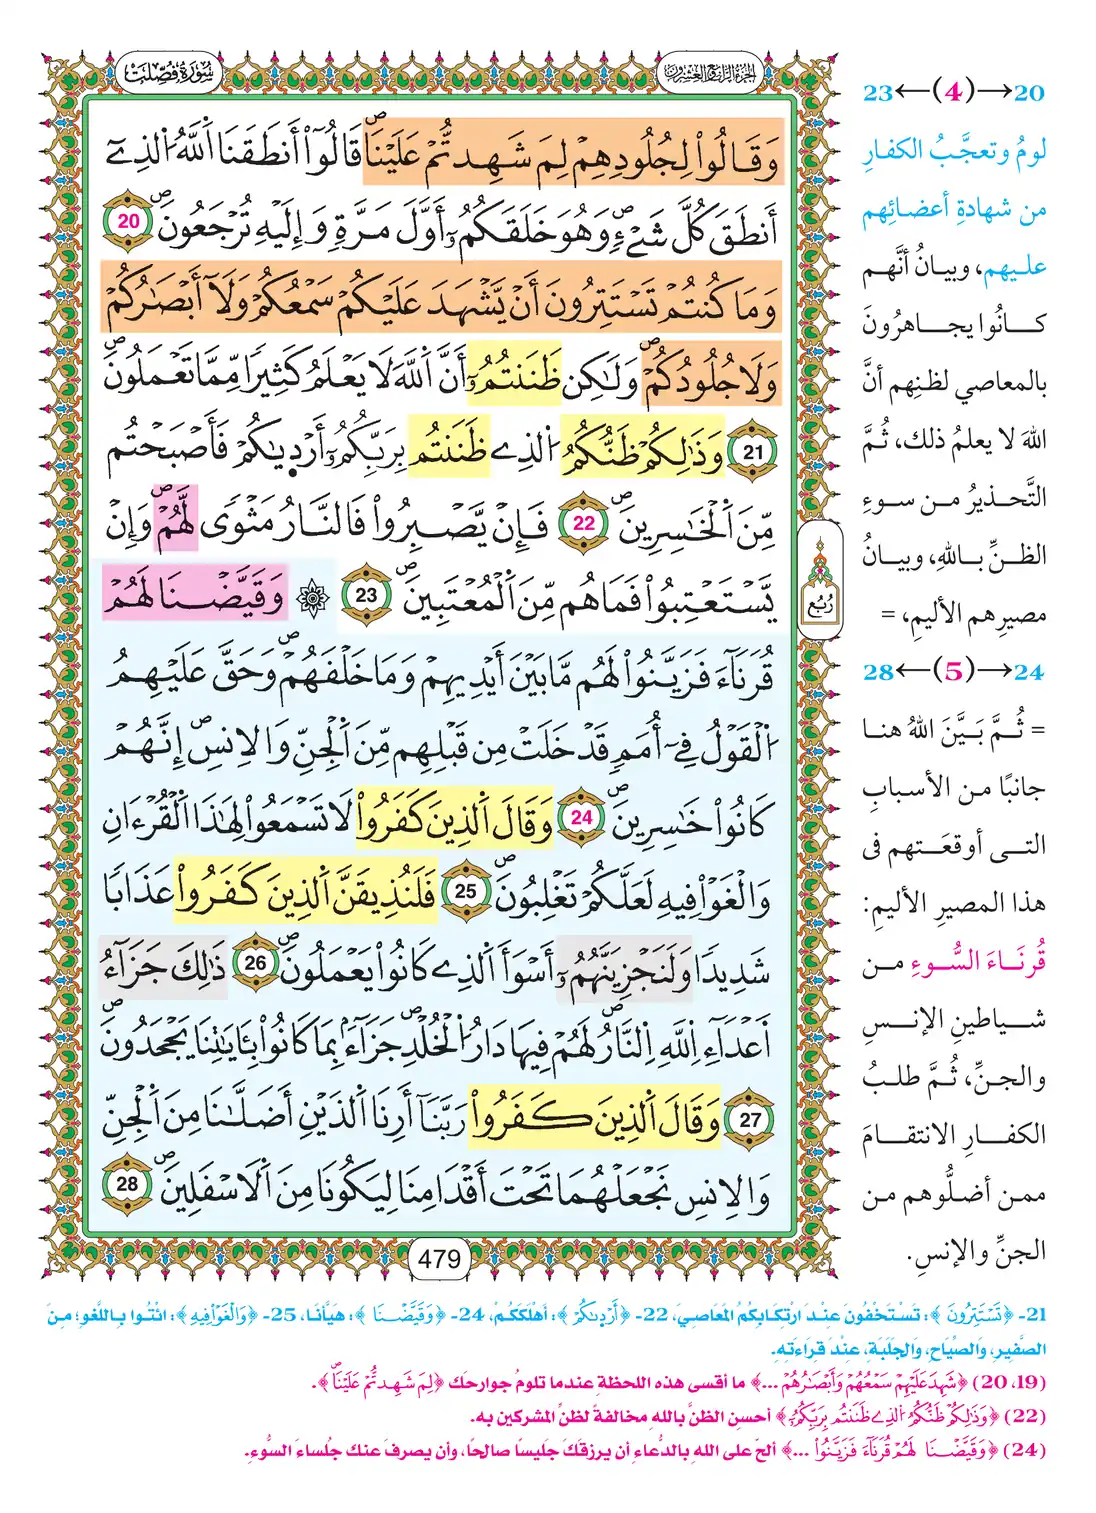 سُورَةُ فُصِّلَتْ
الجُزْءُ الرَّابِعُ وَالعِشْرُونَ
وَقَالُواْ لِجُلُودِهِمْ لِمَ شَهِدتُّمْ عَلَيْنَاۖ قَالُوٓاْ أَنطَقَنَا اَ۬للَّهُ اُ۬لذِےٓ
أَنطَقَ كُلَّ شَےْءٖۖ وَهُوَ خَلَقَكُمُۥٓ أَوَّلَ مَرَّةٖ وَإِلَيْهِ تُرْجَعُونَۖ 20
وَمَا كُنتُمْ تَسْتَتِرُونَ أَنْ يَّشْهَدَ عَلَيْكُمْ سَمْعُكُمْ وَلَآ أَبْصَٰرُكُمْ
وَلَا جُلُودُكُمْۖ وَلَٰكِن ظَنَنتُمُۥٓ أَنَّ اَ۬للَّهَ لَا يَعْلَمُ كَثِيراٗ مِّمَّا تَعْمَلُونَۖ
21 وَذَٰلِكُمْ ظَنُّكُمُ اُ۬لذِے ظَنَنتُم بِرَبِّكُمُۥٓ أَرْد۪يٰكُمْ فَأَصْبَحْتُم
مِّنَ اَ۬لْخَٰسِرِينَۖ 22 فَإِنْ يَّصْبِرُواْ فَالنَّارُ مَثْوىٗ لَّهُمْۖ وَإِنْ
يَّسْتَعْتِبُواْ فَمَا هُم مِّنَ اَ۬لْمُعْتَبِينَۖ 23 ۞ وَقَيَّضْنَا لَهُمْ
قُرَنَآءَ فَزَيَّنُواْ لَهُم مَّا بَيْنَ أَيْدِيهِمْ وَمَا خَلْفَهُمْۖ وَحَقَّ عَلَيْهِمُ
اُ۬لْقَوْلُ فِےٓ أُمَمٖ قَدْ خَلَتْ مِن قَبْلِهِم مِّنَ اَ۬لْجِنِّ وَالِانسِۖ إِنَّهُمْ
كَانُواْ خَٰسِرِينَۖ 24 وَقَالَ اَ۬لذِينَ كَفَرُواْ لَا تَسْمَعُواْ لِهَٰذَا اَ۬لْقُرْءَانِ
وَالْغَوْاْ فِيهِ لَعَلَّكُمْ تَغْلِبُونَۖ 25 فَلَنُذِيقَنَّ اَ۬لذِينَ كَفَرُواْ عَذَاباٗ
شَدِيداٗ وَلَنَجْزِيَنَّهُمُۥٓ أَسْوَأَ اَ۬لذِے كَانُواْ يَعْمَلُونَۖ 26 ذَٰلِكَ جَزَآءُ
اَعْدَآءِ اِ۬للَّهِ اِ۬لنَّارُۖ لَهُمْ فِيهَا دَارُ اُ۬لْخُلْدِۖ جَزَآءَۢ بِمَا كَانُواْ بِـَٔايَٰتِنَا يَجْحَدُونَۖ
27 وَقَالَ اَ۬لذِينَ كَفَرُواْ رَبَّنَآ أَرِنَا اَ۬لذَيْنِ أَضَلَّٰنَا مِنَ اَ۬لْجِنِّ
وَالِانسِ نَجْعَلْهُمَا تَحْتَ أَقْدَامِنَا لِيَكُونَا مِنَ اَ۬لَاسْفَلِينَۖ 28
رُبُع
479
20→(4)←23
لومُ وتعجَّبُ الكفارِ
من شهادةِ أعضائِهم
عليهم، وبيانُ أنَّهم
كانُوا يجاهرُونَ
بالمعاصي لظنِهم أنَّ
اللهَ لا يعلمُ ذلك، ثُمَّ
التَّحذيرُ من سوءِ
الظنِّ باللهِ، وبيانُ
مصيرِهم الأليمِ، =
24→(5)←28
= ثُمَّ بَيَّنَ اللهُ هنا
جانبًا من الأسبابِ
التي أوقعَتهم فى
هذا المصيرِ الأليمِ:
قُرنَاءَ السُّوءِ من
شياطينِ الإنسِ
والجنِّ، ثُمَّ طلبُ
الكفارِ الانتقامَ
ممن أضلُّوهم من
الجنِّ والإنسِ.
21- ﴿تَسْتَتِرُونَ﴾: تَسْتَخْفُونَ عِنْدَ ارْتِكَابِكُمُ المَعَاصِيَ، 22- ﴿أَرْد۪يٰكُمْ﴾: أَهْلَكَكُمْ، 24- ﴿وَقَيَّضْنَا﴾: هَيَّأْنَا، 25- ﴿وَالْغَوْاْ فِيهِ﴾: ائْتُوا بِاللَّغْوِ؛ مِنَ
الصَّفِيرِ، وَالصِّيَاحِ، وَالجَلَبَةِ، عِنْدَ قِرَاءَتِهِ.
(19، 20) ﴿شَهِدَ عَلَيْهِمْ سَمْعُهُمْ وَأَبْصَٰرُهُمْ ...﴾ ما أقسى هذه اللحظةِ عندما تلومُ جوارحك ﴿لِمَ شَهِدتُّمْ عَلَيْنَاۖ﴾.
(22) ﴿وَذَٰلِكُمْ ظَنُّكُمُ اُ۬لذِے ظَنَنتُم بِرَبِّكُمُۥٓ﴾ أحسنِ الظنَّ بالله مخالفةً لظنِّ المشركين به.
(24) ﴿وَقَيَّضْنَا لَهُمْ قُرَنَآءَ فَزَيَّنُواْ ...﴾ ألحّ على اللهِ بالدُّعاءِ أن يرزقَكَ جَليسًا صالحًا، وأن يصرفَ عنك جُلساءَ السُّوءِ.